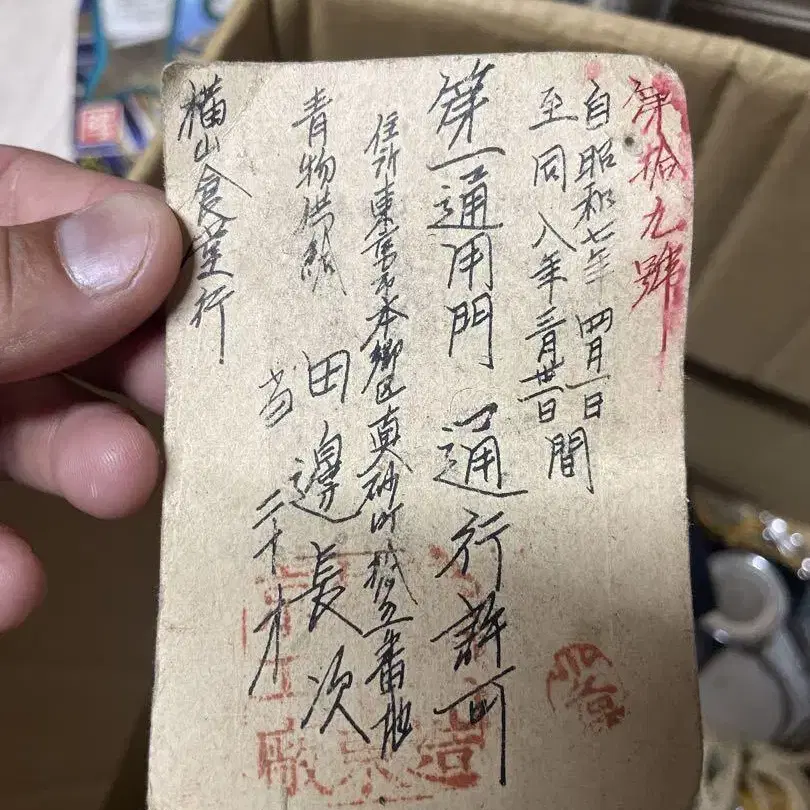 第拾九號
自昭和七年四月一日
至同八年三月卅一日間
第一通用門 通行許可
住所東京市本郷区真砂町拾五番地
青物供給
田邊長次
当二十才
横山食堂行
造
京
廠
工